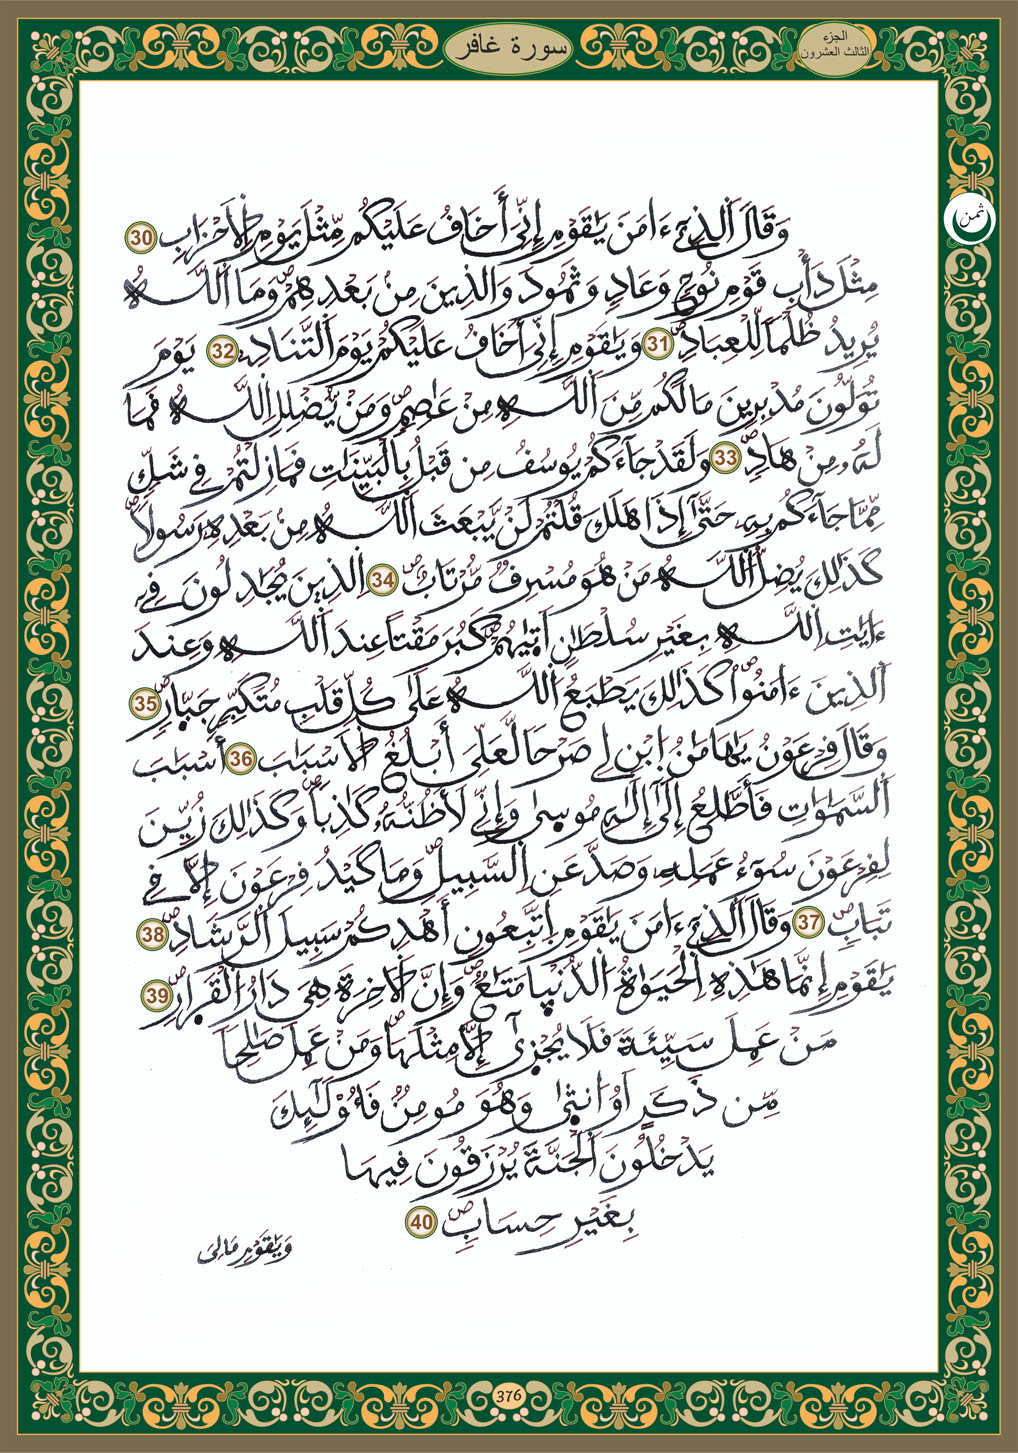 الجزء
الثالث العشرون
سورة غافر
ثمن
وَقَالَ اَلذِےٓ ءَامَنَ يَٰقَوْمِ إِنِّيَ أَخَافُ عَلَيْكُم مِّثْلَ يَوْمِ اِلَاحْزَابِ 30
مِثْلَ دَأْبِ قَوْمِ نُوحٖ وَعَادٖ وَثَمُودَ وَالذِينَ مِنۢ بَعْدِهِمْ صۖ وَمَا اَللَّهُ
يُرِيدُ ظُلْماٗ لِّلْعِبَادِ صۖ 31 وَيَٰقَوْمِ إِنِّيَ أَخَافُ عَلَيْكُمْ يَوْمَ اَلتَّنَادِۦ 32 يَوْمَ
تُوَلُّونَ مُدْبِرِينَ مَا لَكُم مِّنَ اَللَّهِ مِنْ عَاصِمٖ صۖ وَمَنْ يُّضْلِلِ اِللَّهُ فَمَا
لَهُۥ مِنْ هَادٖ صۖ 33 وَلَقَدْ جَآءَكُمْ يُوسُفُ مِن قَبْلُ بِالْبَيِّنَٰتِ فَمَا زِلْتُمْ فِے شَكّٖ
مِّمَّا جَآءَكُم بِهِۦ حَتَّىٰٓ إِذَا هَلَكَ قُلْتُمْ لَنْ يَّبْعَثَ اَللَّهُ مِنۢ بَعْدِهِۦ رَسُولاٗ صۖ
كَذَٰلِكَ يُضِلُّ اُللَّهُ مَنْ هُوَ مُسْرِفٞ مُّرْتَابٌ صۖ 34 اِلذِينَ يُجَٰدِلُونَ فِےٓ
ءَايَٰتِ اِللَّهِ بِغَيْرِ سُلْطَٰنٍ اَتَيٰهُمْ كَبُرَ مَقْتاً عِندَ اَللَّهِ وَعِندَ
اَلذِينَ ءَامَنُواْ صۖ كَذَٰلِكَ يَطْبَعُ اُللَّهُ عَلَىٰ كُلِّ قَلْبِ مُتَكَبِّرٖ جَبّارٖ صۖ 35
وَقَالَ فِرْعَوْنُ يَٰهَامَٰنُ اُبْنِ لِے صَرْحاٗ لَّعَلِّيَ أَبْلُغُ اُلَاسْبَٰبَ 36 أَسْبَٰبَ
اَلسَّمَٰوَٰتِ فَأَطَّلِعُ إِلَىٰٓ إِلَٰهِ مُوسَىٰ وَإِنِّے لَأَظُنُّهُۥ كَٰذِباٗ صۖ وَكَذَٰلِكَ زُيِّنَ
لِفِرْعَوْنَ سُوٓءُ عَمَلِهِۦ وَصَدَّ عَنِ اِلسَّبِيلِ صۖ وَمَا كَيْدُ فِرْعَوْنَ إِلَّا فِے
تَبَابٖ صۖ 37 وَقَالَ اَلذِےٓ ءَامَنَ يَٰقَوْمِ اِتَّبِعُونِ أَهْدِكُمْ سَبِيلَ اَلرَّشَادِ صۖ 38
يَٰقَوْمِ إِنَّمَا هَٰذِهِ اِلْحَيَوٰةُ اُلدُّنْيَا مَتَٰعٞ صۖ وَإِنَّ اَلَاخِرَةَ هِيَ دَارُ اُلْقَرَارِ صۖ 39
مَنْ عَمِلَ سَيِّئَةٗ فَلَا يُجْزَىٰٓ إِلَّا مِثْلَهَا صۖ وَمَنْ عَمِلَ صَٰلِحاٗ
مِّن ذَكَرٍ اَوُ انثَىٰ وَهُوَ مُومِنٞ فَأُوْلَٰٓئِكَ
يَدْخُلُونَ اَلْجَنَّةَ يُرْزَقُونَ فِيهَا
بِغَيْرِ حِسَابٖ صۖ 40
وَيَٰقَوْمِ مَا لِيَ
376